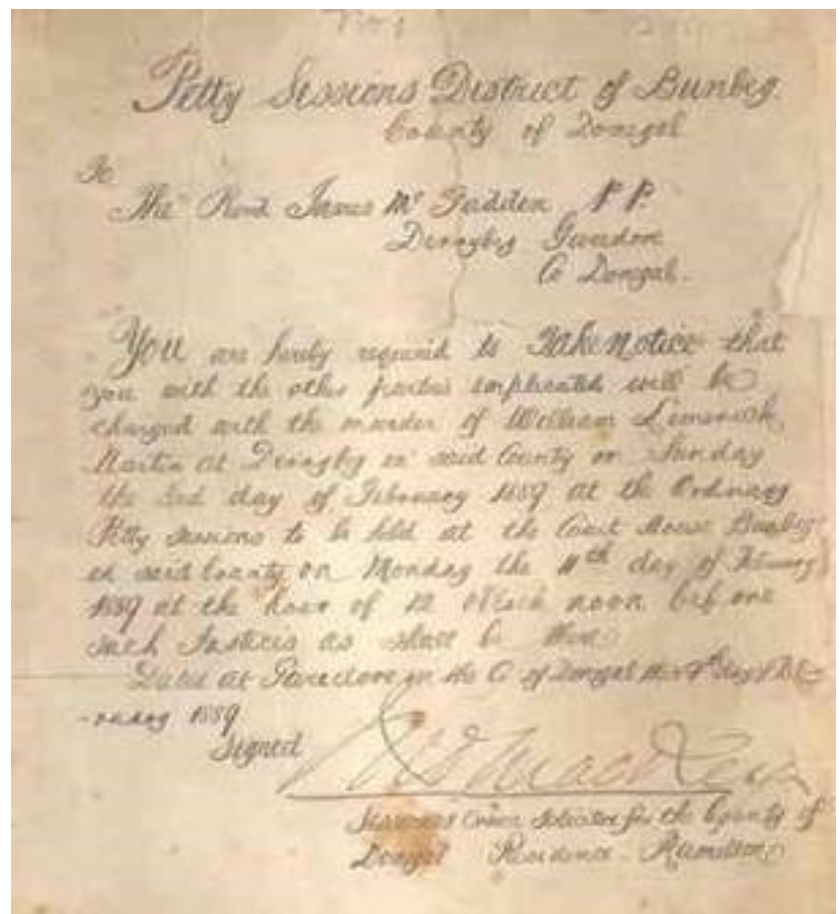 Petty Sessions District of Bunbeg.
County of Donegal
To
The Revd James Mc Fadden P P.
Derrybeg Gweedore
Co Donegal.
You are hereby required to Take Notice that
you with the other parties implicated will be
charged with the murder of William Limerick
Martin at Derrybeg in said County on Sunday
the 3rd day of February 1889 at the Ordinary
Petty Sessions to be held at the Court House Bunbeg
in said County on Monday the 11th day of February
1889 at the hour of 12 o'Clock noon before
such Justices as shall be there
Dated at Gweedore in the Co of Donegal this day of Feb
-ruary 1889
Signed
Sessions Crown Solicitor for the County of
Donegal Residence - Ramelton